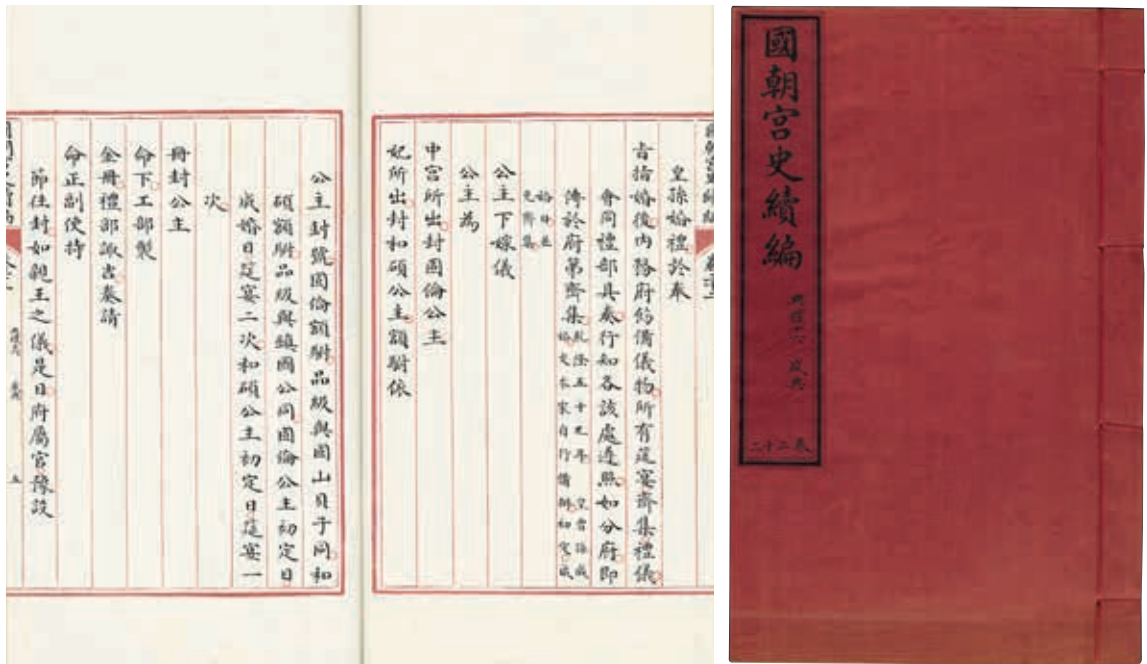 國朝宮史續編
卷二十二
皇孫婚禮於奉
旨指婚後內務府備儀物所有筵宴齊集禮儀
會同禮部具奏行知各該處遵照如分府即
傳於府第齊集
乾隆五十九年 皇曾孫成
婚交本家自行備辦初定成
婚日並
免齊集
公主下嫁儀
公主為
中宮所出封固倫公主
妃所出封和碩公主額駙依
公主封號固倫額駙品級與固山貝子同和
碩額駙品級與鎮國公同固倫公主初定日
成婚日筵宴二次和碩公主初定日筵宴一
次
冊封公主
命下工部製
金冊禮部諏吉奏請
命正副使持
節往封如親王之儀是日府屬官豫設
五